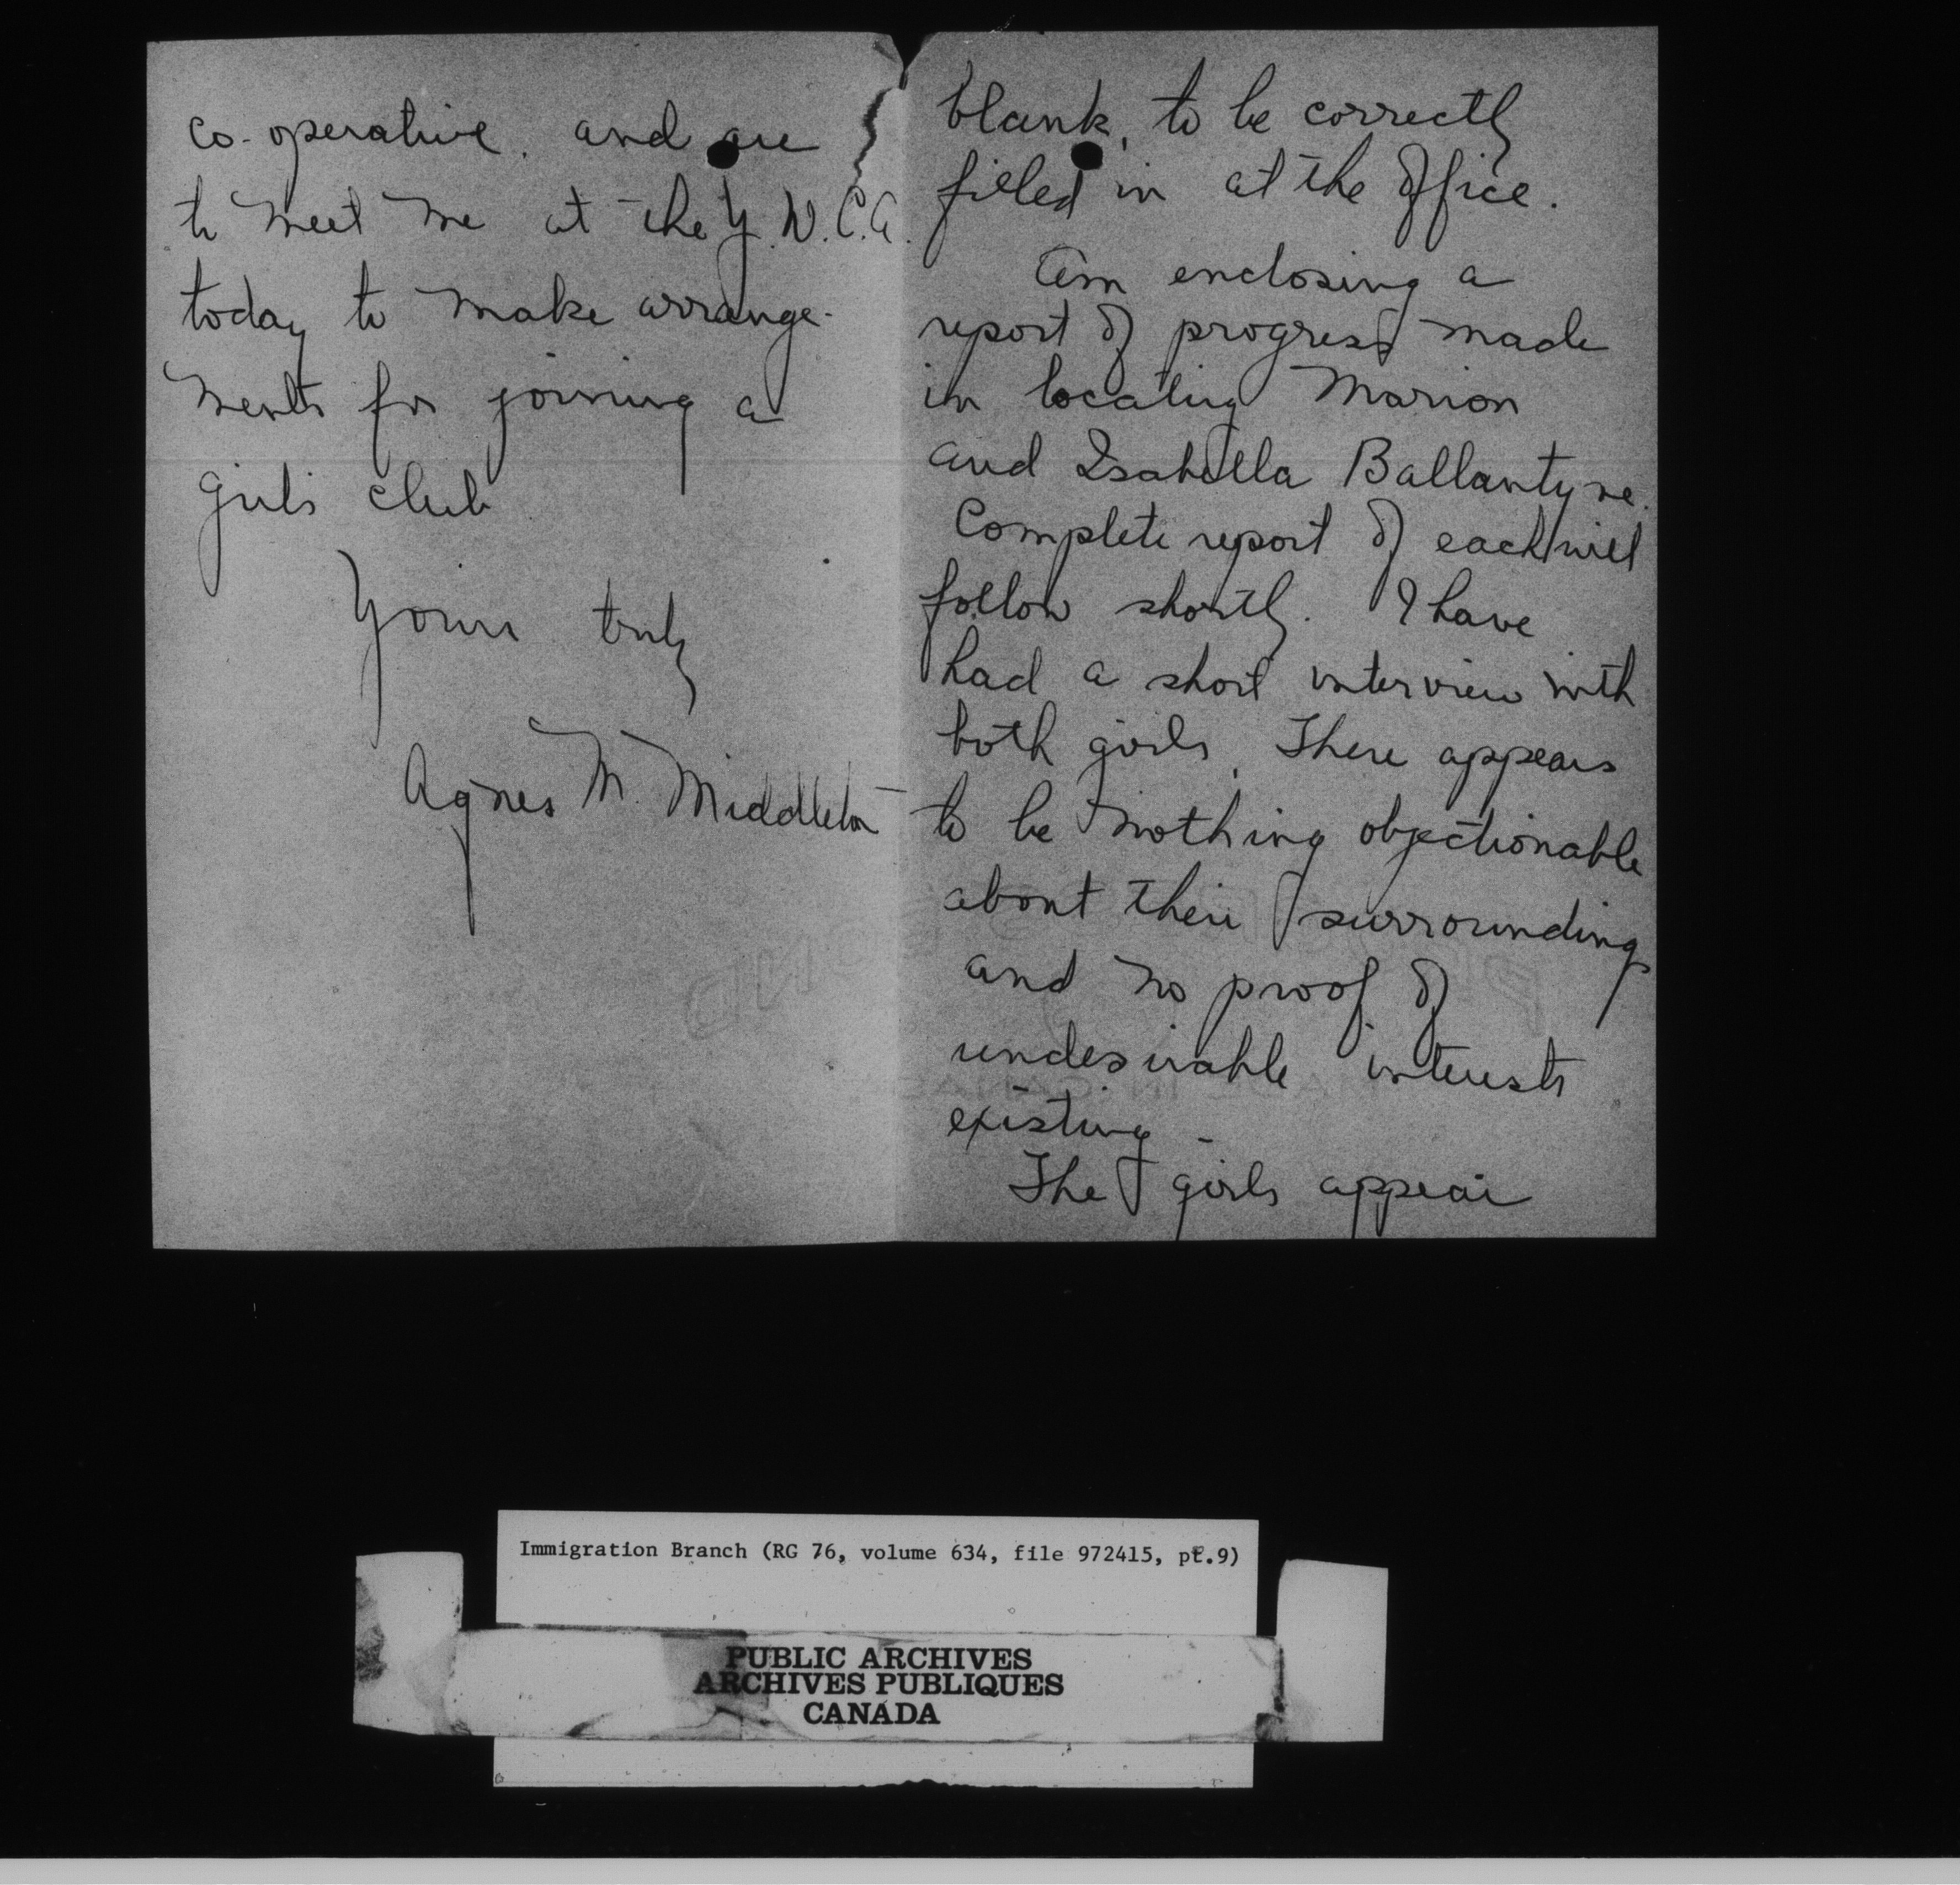 blank, to be correctly
filled in at the office.
Am enclosing a
report of progress made
in locating Marion
and Isabella Ballantyne.
Complete report of each will
follow shortly. I have
had a short interview with
both girls. There appears
to be nothing objectionable
about their surroundings
and no proof of
undesirable interests
existing -
The girls appear
co-operative. and are
to meet me at the Y.W.C.A.
today to make arrange-
ments for joining a
girls club
Yours truly
Agnes M. Middleton
Immigration Branch (RG 76, volume 634, file 972415, pt.9)
PUBLIC ARCHIVES
ARCHIVES PUBLIQUES
CANADA